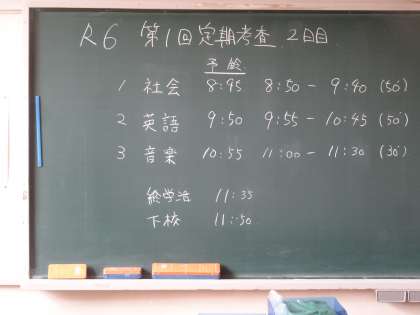 R6 第1回定期考査 2日目
予鈴
1 社会 8:45 8:50 - 9:40 (50')
2 英語 9:50 9:55 - 10:45 (50')
3 音楽 10:55 11:00 - 11:30 (30')
終学活 11:35
下校 11:50